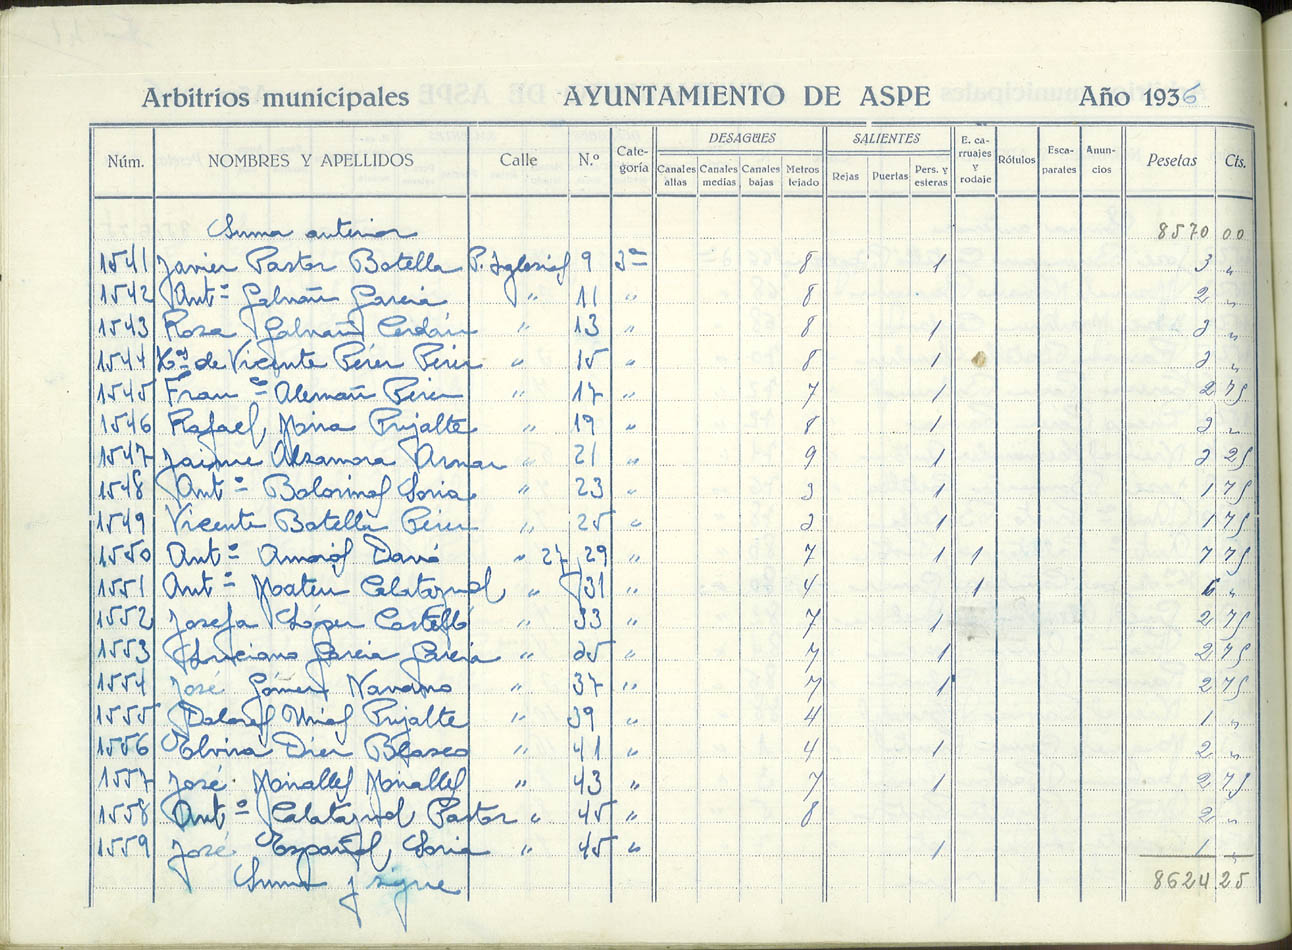 Arbitrios municipales AYUNTAMIENTO DE ASPE Año 1936
Núm. NOMBRES Y APELLIDOS Calle N.º Cate-goría DESAGÜES Canales altas Canales medias Canales bajas Metros tejado SALIENTES Rejas Puertas Pers. y esteras E. ca-rruajes y rodaje Rótulos Esca-parates Anun-cios Pesetas Cts.
Suma anterior 8570 00
1541 Javier Pastor Botella P. Iglesias 9 3ª 8 1 3 "
1542 Antº Galvañ Garcia " 11 " 8 2 "
1543 Rosa Galvañ Cerdán " 13 " 8 1 3 "
1544 de Vicente Pérez Pérez " 15 " 8 1 3 "
1545 Franco Alemañ Pérez " 17 " 7 1 2 75
1546 Rafael Mira Pujalte " 19 " 8 1 3 "
1547 Jaime Alzamora Arnau " 21 " 9 1 3 25
1548 Antº Soria " 23 " 3 1 1 75
1549 Vicente Botella Pérez " 25 " 3 1 1 75
1550 Antº Amorós Davó " 27, 29 " 7 1 1 7 75
1551 Antº Mateu Calatayud " 31 " 4 1 6 "
1552 Josefa López Castelló " 33 " 7 1 2 75
1553 Luciano Garcia Garcia " 35 " 7 1 2 75
1554 José Gómez Navarro " 37 " 7 1 2 75
1555 Dolores Pujalte " 39 " 4 1 "
1556 Elvira Diez Blasco " 41 " 4 1 2 "
1557 José Miralles Miralles " 43 " 7 1 2 75
1558 Antº Calatayud Pastor " 45 " 8 2 "
1559 José Español Soria " 45 " 1 1 "
Suma y sigue 8624 25